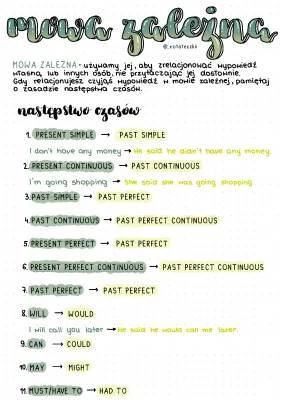 mowa zależna
@_notateczkii
MOWA ZALEŻNA - używamy jej, aby zrelacjonować wypowiedź
własną, lub innych osób, nie przytaczając jej dosłownie.
Gdy relacjonujesz czyjąś wypowiedź w mowie zależnej, pamiętaj
o zasadzie następstwa czasów.
następstwo czasów
1. PRESENT SIMPLE → PAST SIMPLE
I don't have any money → He said he didn't have any money.
2. PRESENT CONTINUOUS → PAST CONTINUOUS
I'm going shopping → She said she was going shopping
3. PAST SIMPLE → PAST PERFECT
4. PAST CONTINUOUS → PAST PERFECT CONTINUOUS
5. PRESENT PERFECT → PAST PERFECT
6. PRESENT PERFECT CONTINUOUS → PAST PERFECT CONTINUOUS
7. PAST PERFECT → PAST PERFECT
8. WILL → WOULD
I will call you later → He said he would call me later.
9. CAN → COULD
10. MAY → MIGHT
11. MUST/HAVE TO → HAD TO